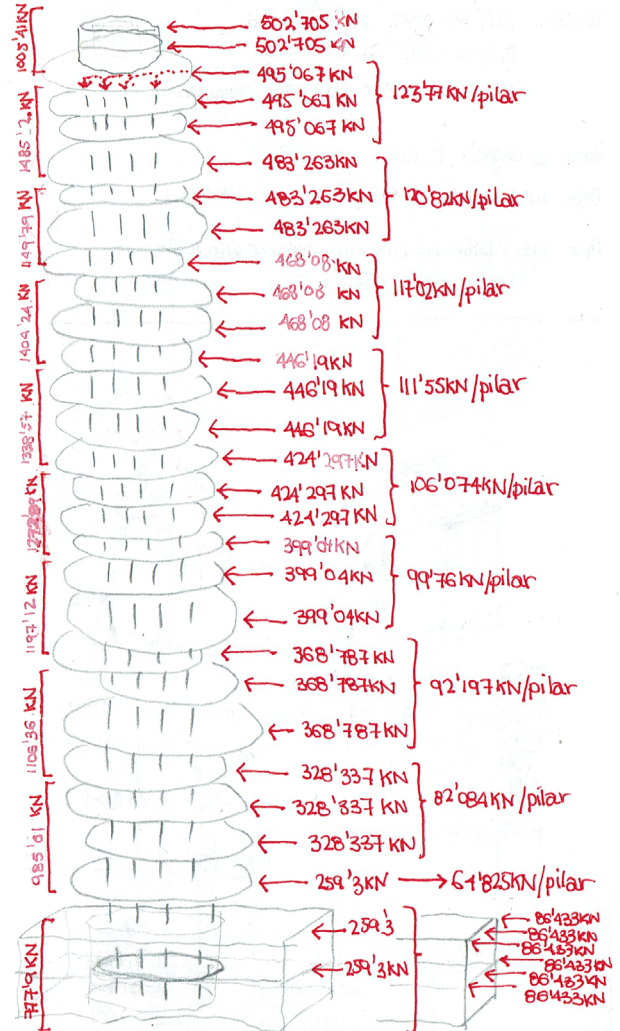 502'705 KN
502'705 KN
1005'41KN
495'067KN
495'067 KN
495'067 KN
123'77KN/pilar
1485'20 KN
483'263KN
483'263KN
483'263KN
120'82KN/pilar
1449'79 KN
468'08 KN
468'08 KN
468'08 KN
117'02KN/pilar
1404'24 KN
446'19KN
446'19KN
446'19KN
111'55KN/pilar
1338'57 KN
424'297KN
424'297KN
424'297KN
106'074KN/pilar
1272'89 KN
399'04KN
399'04KN
399'04KN
99'76KN/pilar
1197'12 KN
368'787KN
368'787KN
368'787KN
92'197KN/pilar
1106'36 KN
328'337 KN
328'337 KN
328'337 KN
82'084KN/pilar
985'01 KN
259'3KN
64'825KN/pilar
259'3
259'3KN
777'9KN
86'433KN
86'433KN
86'433KN
86'433KN
86'433KN
86'433KN